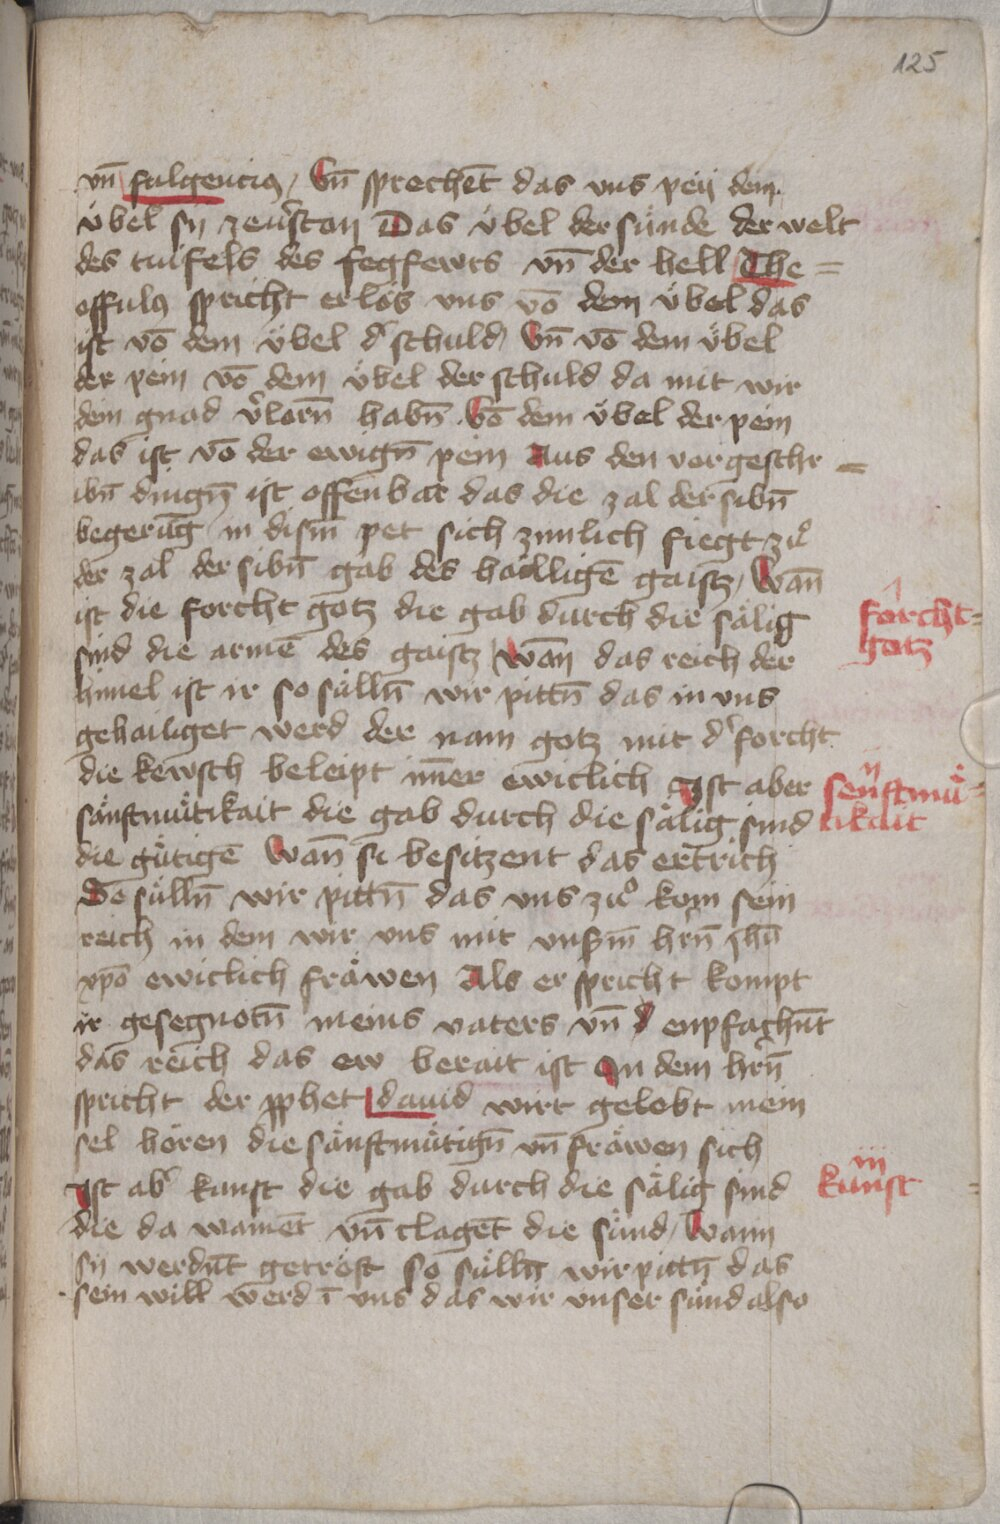 125
vn̄ fulgencius / Vn̄ sprechēt das vns peÿ dein
übel sÿ zeu̇stan Das übel der sünde der welt
des tuifels des fegfewrs vn̄ der hell The=
offulus spricht erlös vns vō dem übel das
ist vō dem übel d' schuld / Vn̄ vō dem übel
der pein vō dem übel der schuld da mit wir
dein gnad v'lorn̄ habn̄ Vō dem übel der pein
das ist vō der ewign̄ pein Aus den vorgeschr=
ibn̄ dingn̄ ist offenbar das die zal der sibn̄
begerūg in dism̄ pet sich zimlich fiegt zuͦ
der zal der sibn̄ gab des hailligē gaistz / Wan̄
ist die forcht gotz die gab durch die sälig
sind die armē des gaistz Wan̄ das reich der
himel ist ir so sülln̄ wir pittn̄ das in vns
gehailiget werd der nam gotz mit d' forcht
die kewsch beleipt im̄er ewiclich Ist aber
sänftmütikait die gab durch die sälig sind
die gütigē Wan̄ si besitzent das ertrich
So sülln̄ wir pittn̄ das vns zuͦ kom sein
reich in dem wir vns mit vnsm̄ hrn̄ ihū
xpō ewiclich fräwen Als er spricht kompt
ir gesegnotn̄ meins vaters vn̄ enpfachn̄t
das reich das ew berait ist In dem hrn̄
spricht der pphet dauid wirt gelobt mein
sel hören die sänftmütign̄ vn̄ fräwen sich
Ist ab' kunst die gab durch die sälig sind
die da wainēt vn̄ clagēt die sünd / Wann
sÿ werdn̄t getröst so sülln̄ wir pittn̄ das
sein will werd ī vns das wir vnser sünd also
i
forcht=
gotz
ii
senftmü=
tikait
iii
kunst